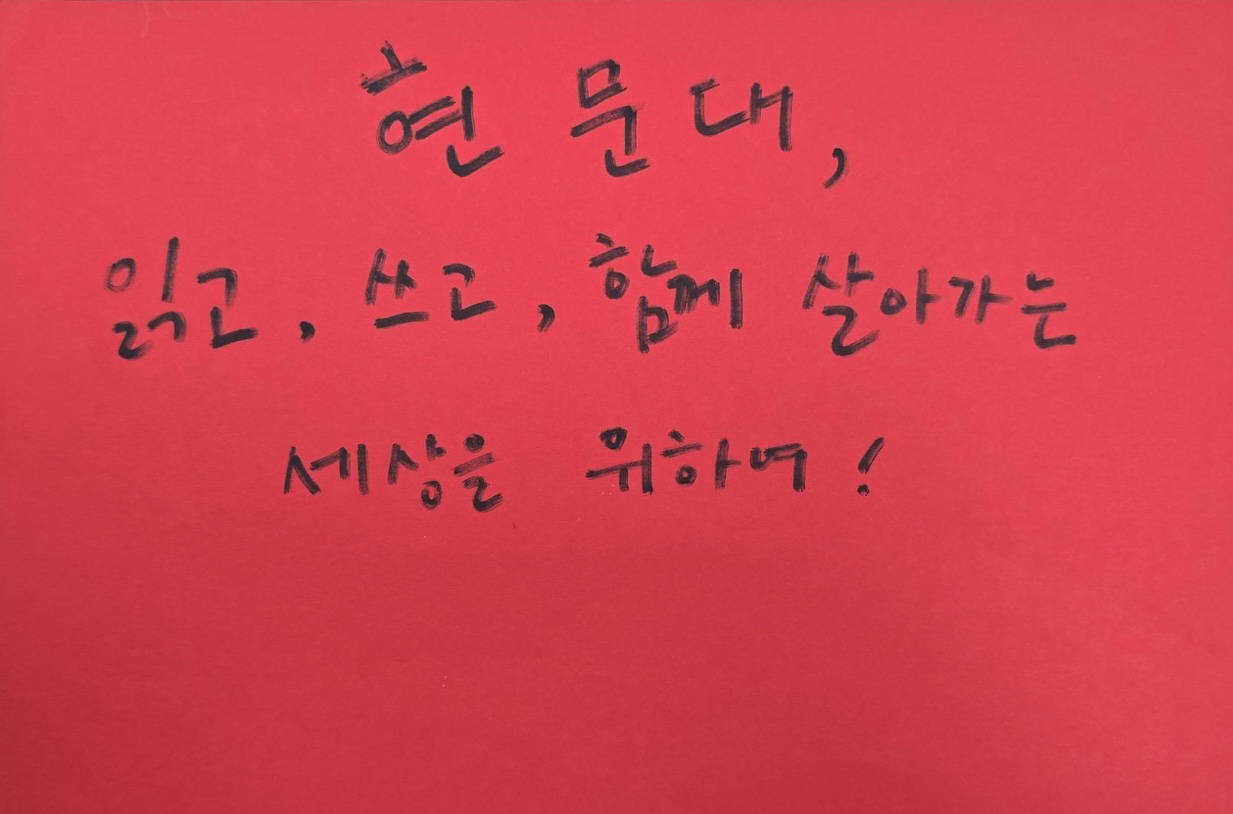 현 문 대,
읽고, 쓰고, 함께 살아가는
세상을 위하여!